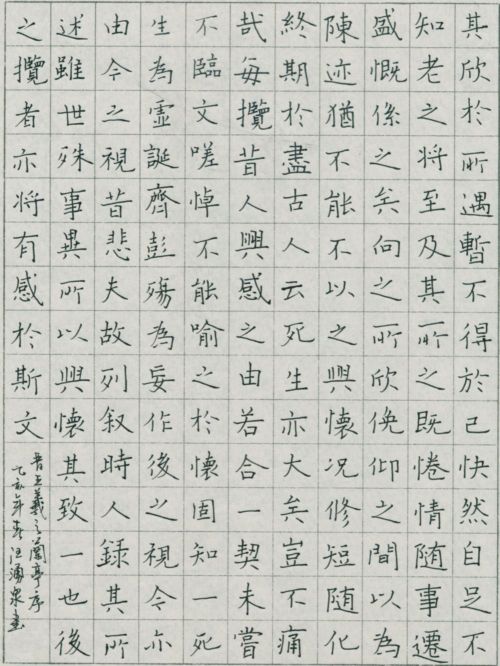 其欣於所遇暫不得於己快然自足不
知老之將至及其所之既惓情随事遷
盛慨係之矣向之所欣俛仰之間以為
陳迹猶不能不以之興懷况修短随化
終期於盡古人云死生亦大矣豈不痛
哉每攬昔人興感之由若合一契未嘗
不臨文嗟悼不能喻之於懷固知一死
生為虛誕齊彭殤為妄作後之視今亦
由今之視昔悲夫故列叙時人録其所
述雖世殊事異所以興懷其致一也後
之攬者亦將有感於斯文
晋王羲之蘭亭序
乙亥年春汪湧泉書